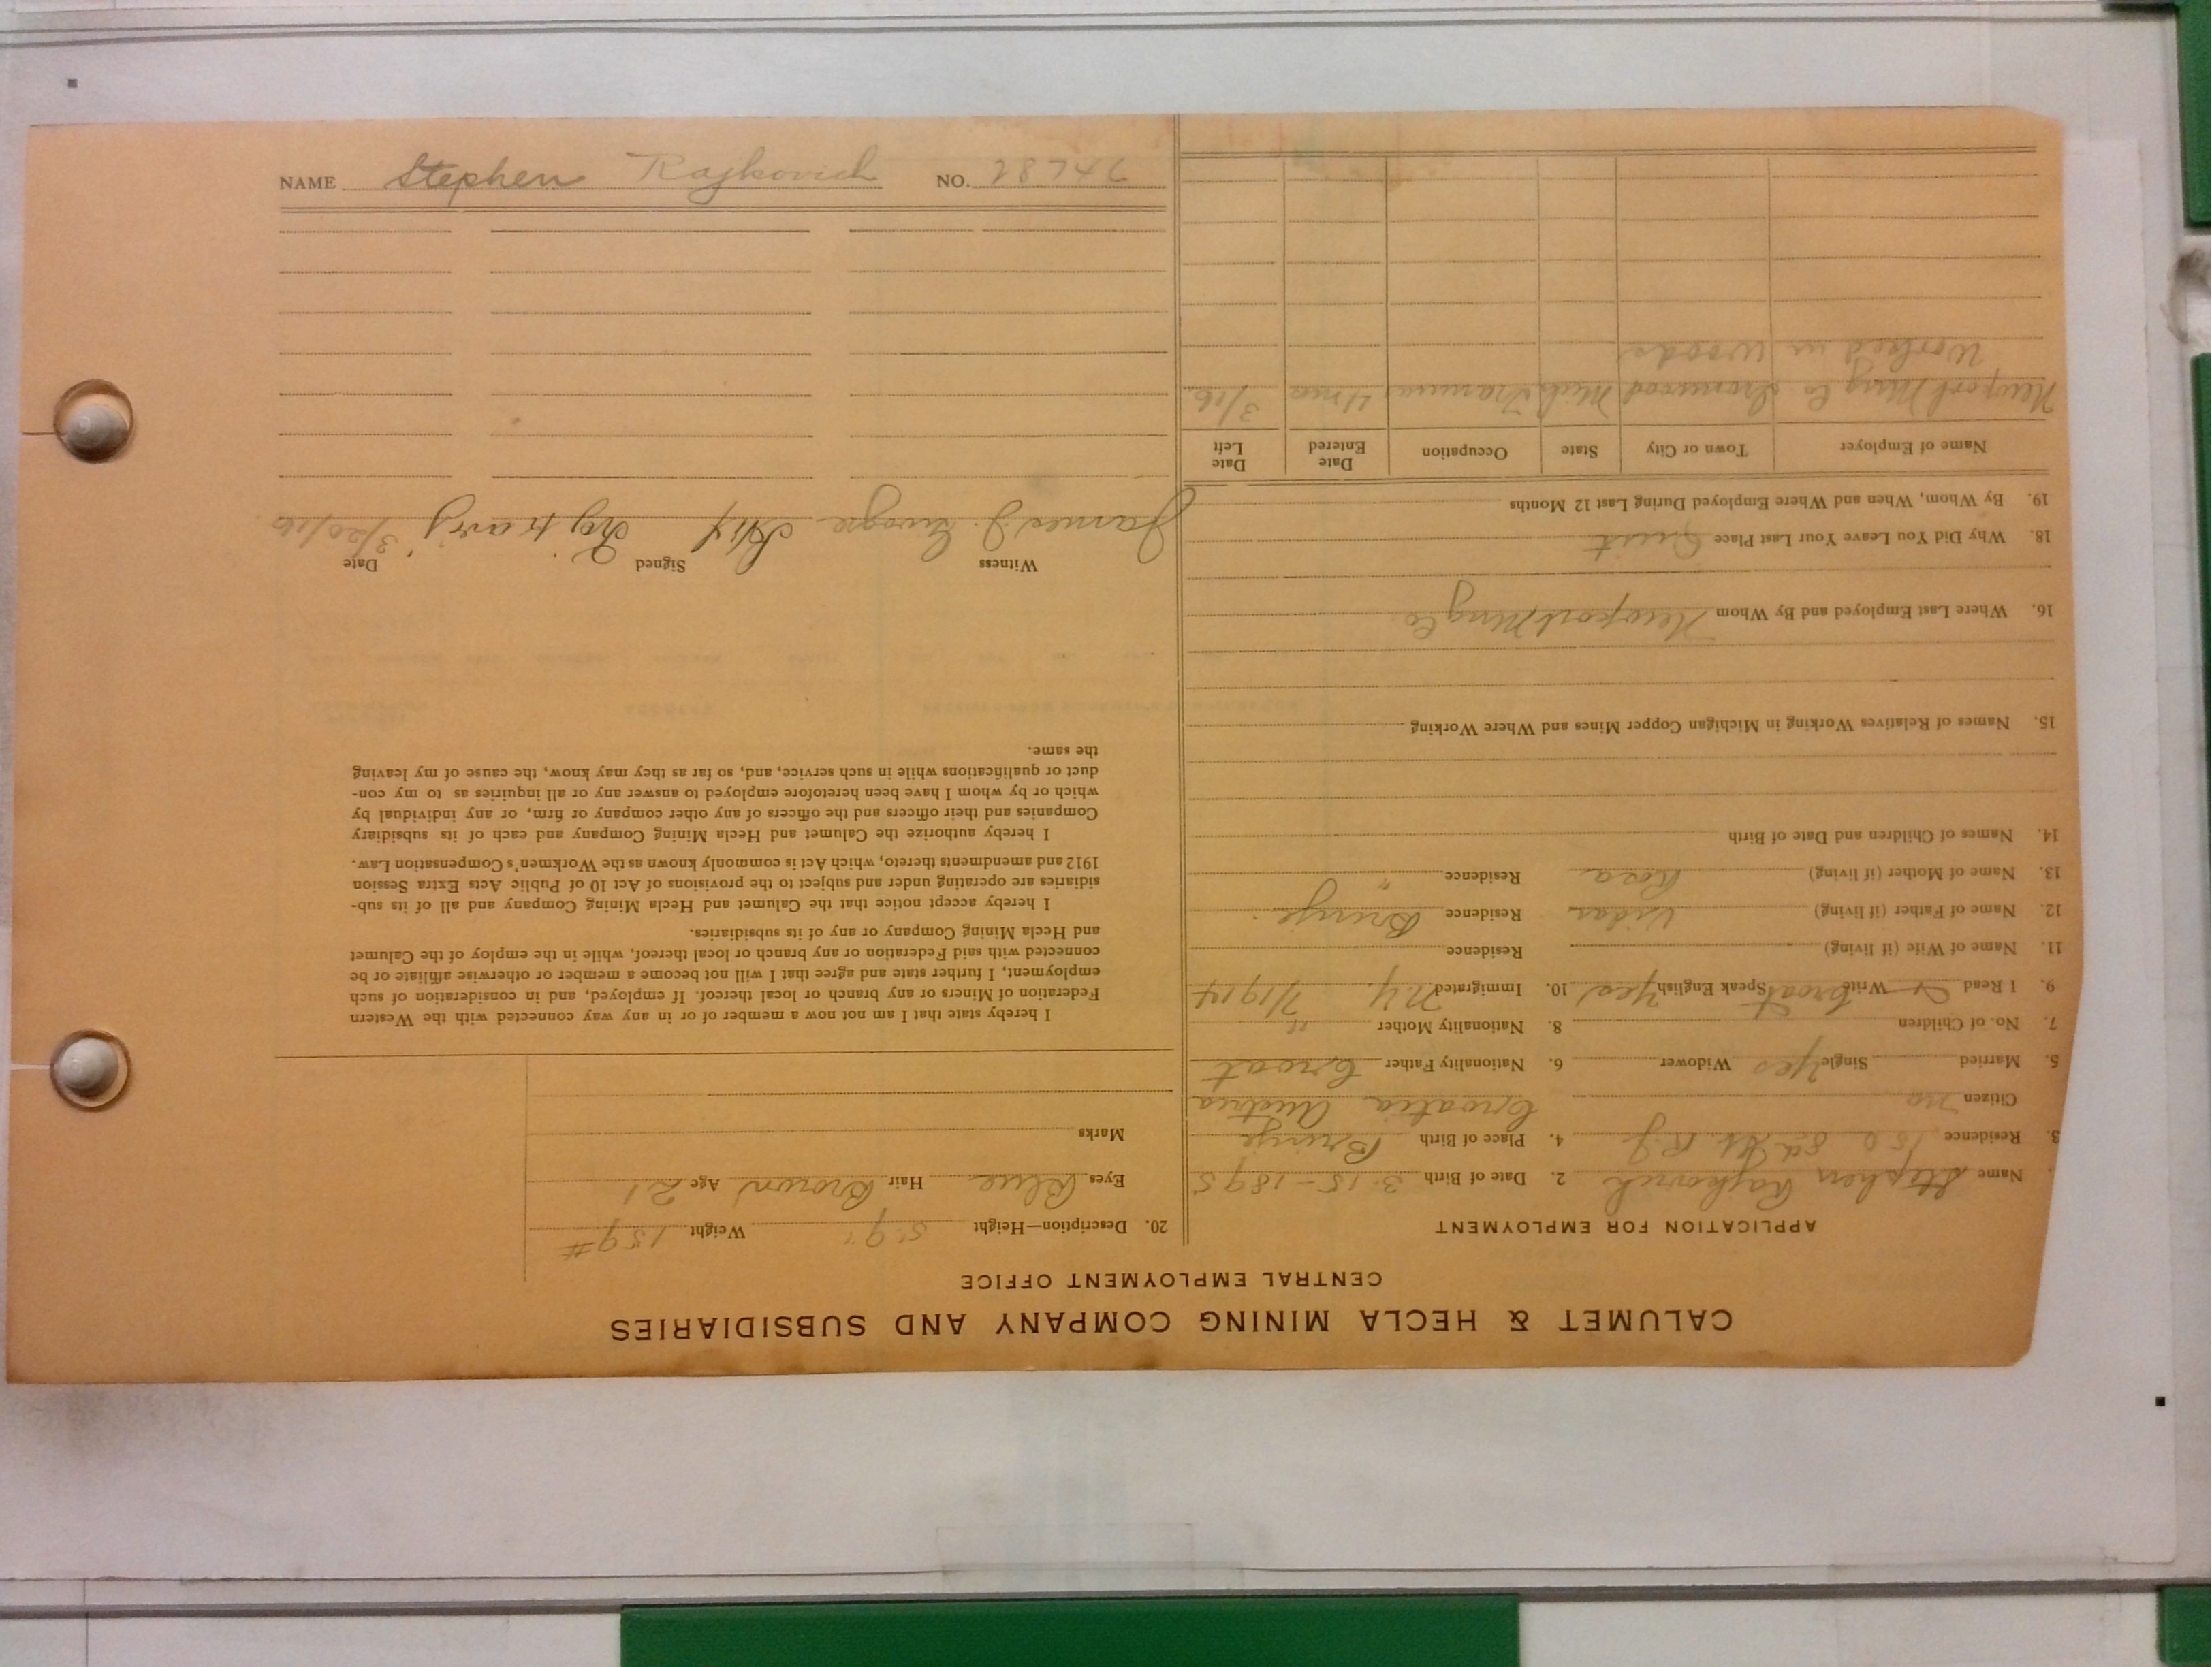 CALUMET & HECLA MINING COMPANY AND SUBSIDIARIES
CENTRAL EMPLOYMENT OFFICE
APPLICATION FOR EMPLOYMENT
Name Stephen Rajkovich 2. Date of Birth 3-15-1895
3. Residence 150 St. 4. Place of Birth Brinje
Citizen no Croatia Austria
5. Married Single yes Widower 6. Nationality Father Croat
7. No. of Children 8. Nationality Mother "
9. I Read Write Croat Speak English yes 10. Immigrated N.Y. 7/1914
11. Name of Wife (if living) Residence
12. Name of Father (if living) Residence Brinje
13. Name of Mother (if living) Rosa Residence "
14. Names of Children and Date of Birth
15. Names of Relatives Working in Michigan Copper Mines and Where Working
16. Where Last Employed and By Whom Newport Mng Co.
18. Why Did You Leave Your Last Place Quit
19. By Whom, When and Where Employed During Last 12 Months
Name of Employer Town or City State Occupation Date Entered Date Left
Newport Mng Co Ironwood Mich Trammer 4 mos 3/16
Worked in woods
20. Description—Height 5'9" Weight 159#
Eyes Blue Hair Brown Age 21
Marks
I hereby state that I am not now a member of or in any way connected with the Western
Federation of Miners or any branch or local thereof. If employed, and in consideration of such
employment, I further state and agree that I will not become a member or otherwise affiliate or be
connected with said Federation or any branch or local thereof, while in the employ of the Calumet
and Hecla Mining Company or any of its subsidiaries.
I hereby accept notice that the Calumet and Hecla Mining Company and all of its sub-
sidiaries are operating under and subject to the provisions of Act 10 of Public Acts Extra Session
1912 and amendments thereto, which Act is commonly known as the Workmen's Compensation Law.
I hereby authorize the Calumet and Hecla Mining Company and each of its subsidiary
Companies and their officers and the officers of any other company or firm, or any individual by
which or by whom I have been heretofore employed to answer any or all inquiries as to my con-
duct or qualifications while in such service, and, so far as they may know, the cause of my leaving
the same.
Witness Signed Date
James J. 3/20/16
NAME Stephen Rajkovich NO. 28746